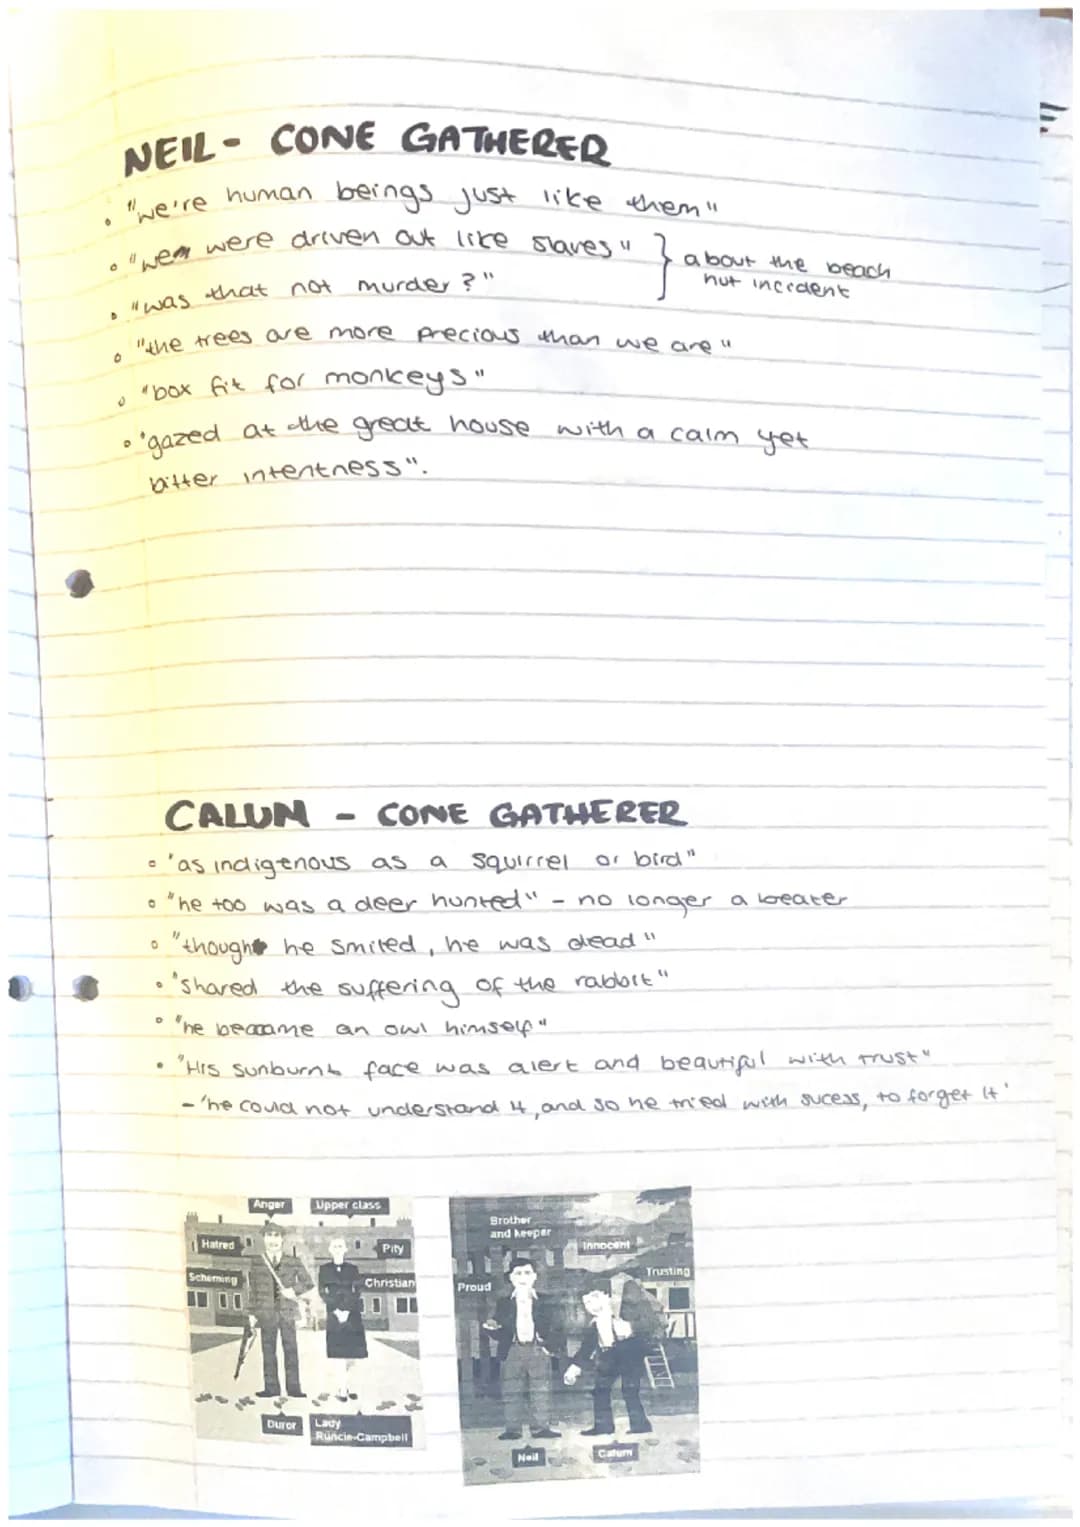 NEIL - CONE GATHERER
• "we're human beings just like them"
• "wem were driven out like slaves" } about the beach
• "was that not murder?" hut incident
• "the trees are more precious than we are"
• "box fit for monkeys"
• 'gazed at the great house with a calm yet
bitter intentness".
CALUM - CONE GATHERER
• 'as indigenous as a squirrel or bird"
• "he too was a deer hunted" - no longer a beater
• "though he smiled, he was dead"
• 'shared the suffering of the rabbit"
• "he became an owl himself"
• "His sunburnt face was alert and beautiful with trust"
- 'he could not understand it, and so he tried with sucess, to forget it'
Anger Upper class
Hatred Pity
Scheming Christian
Duror Lady
Runcie-Campbell
Brother
and keeper
Innocent
Trusting
Proud
Neil Calum